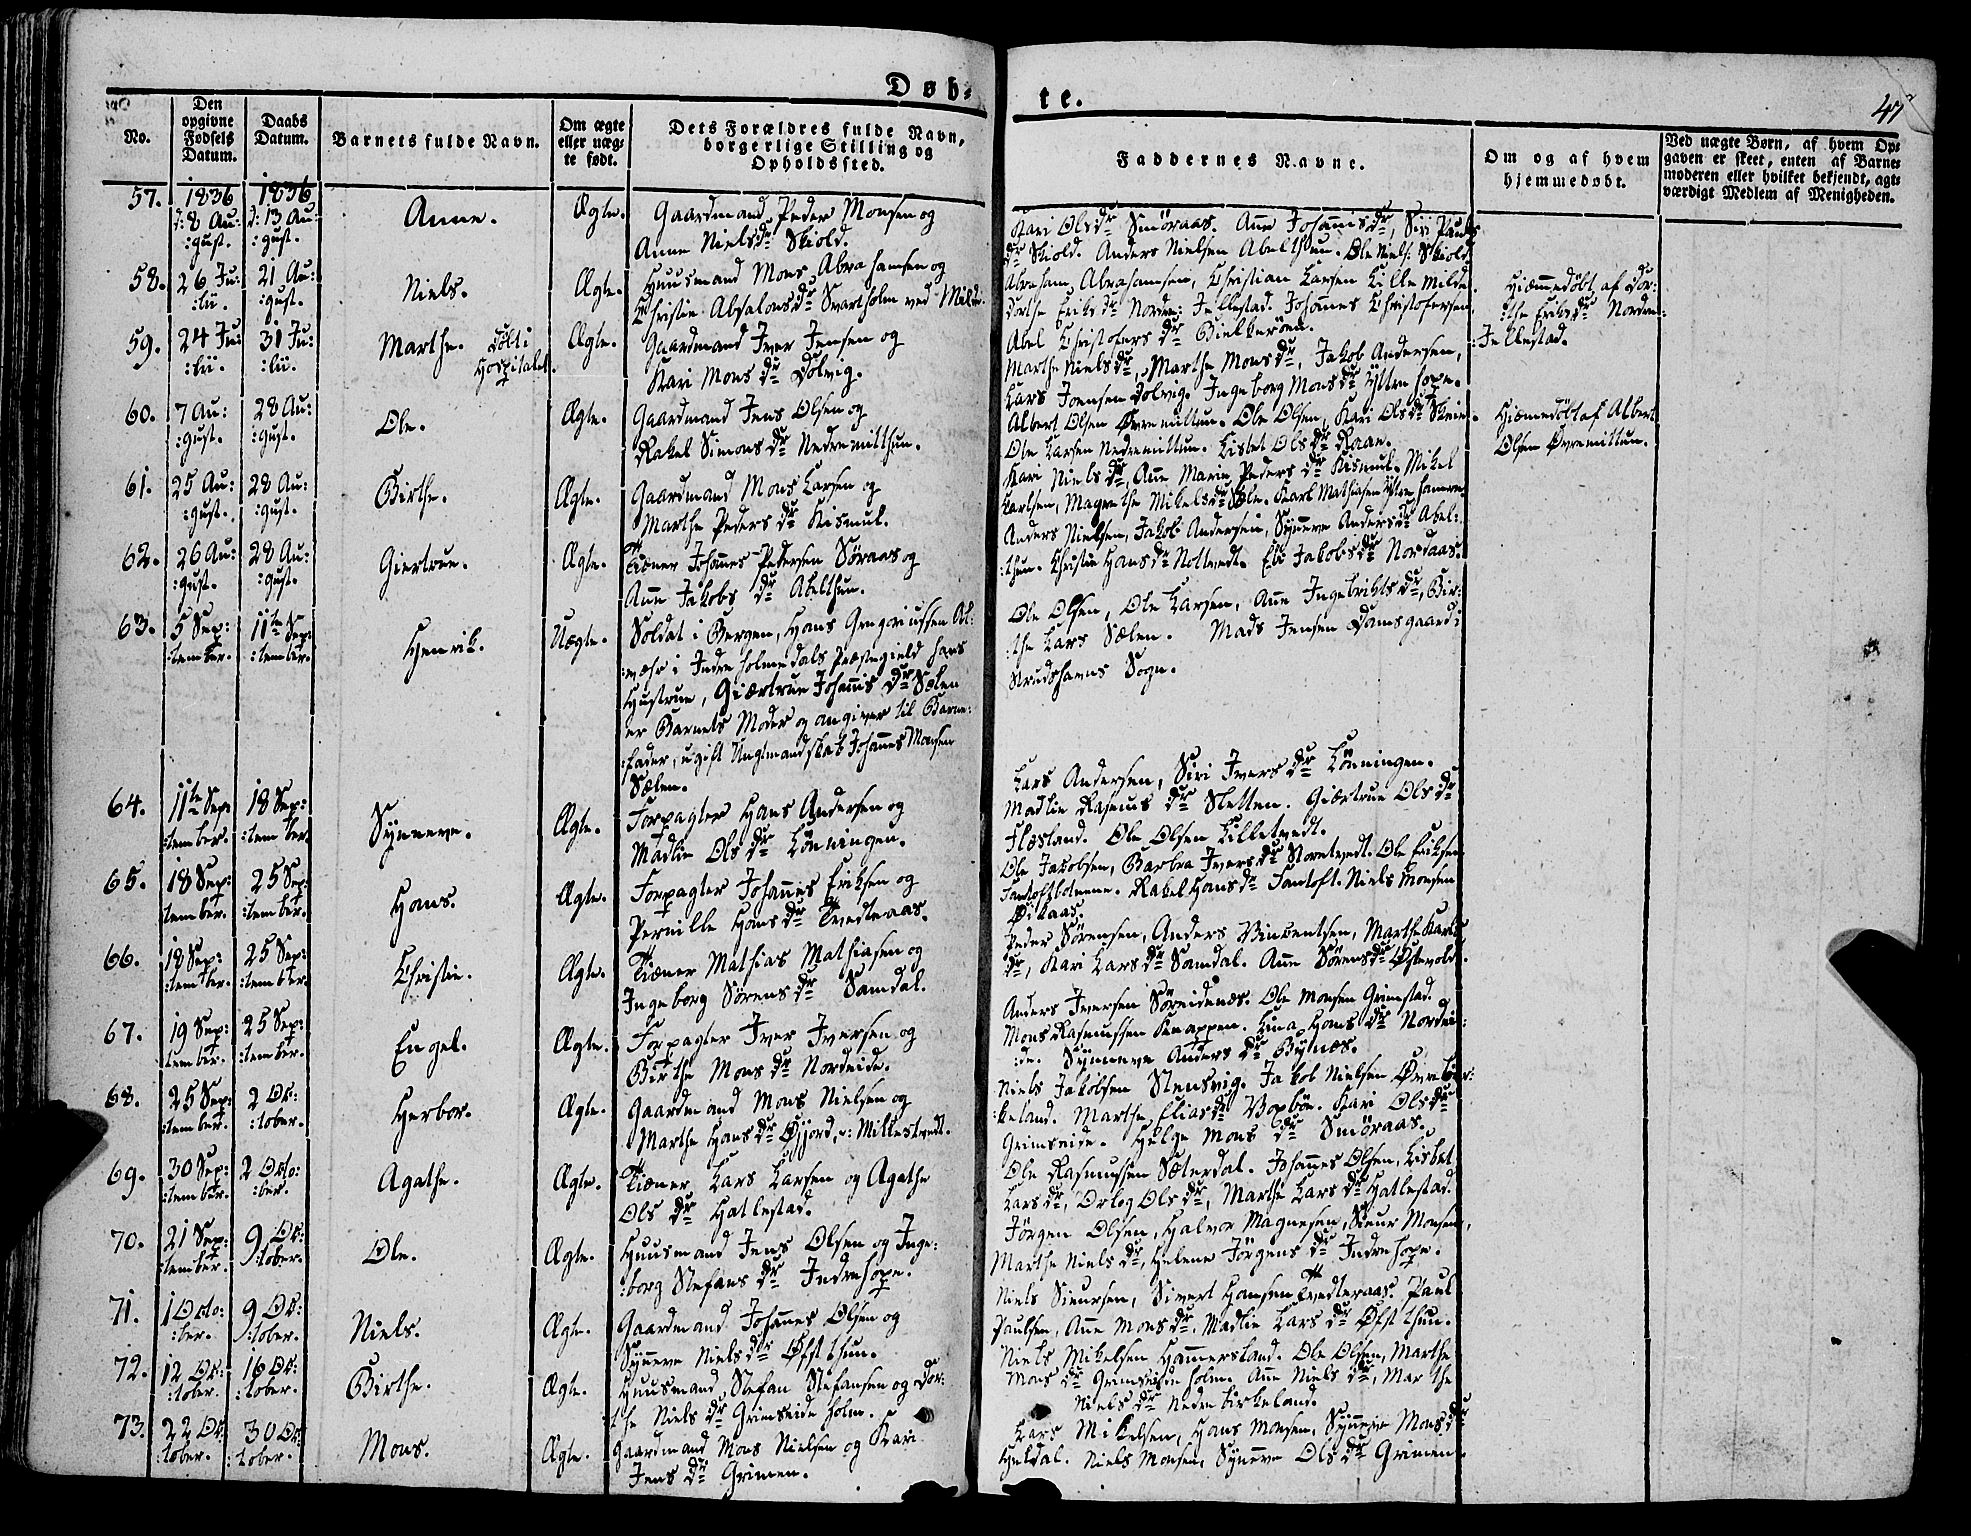 Døb-
te.
47
No.
Den opgivne Fødsels Datum.
Daabs Datum.
Barnets fulde Navn.
Om ægte eller uægte født.
Dets Forældres fulde Navn, borgerlige Stilling og Opholdssted.
Faddernes Navne.
Om og af hvem hjemmedøbt.
Ved uægte Børn, af hvem Opgaven er skeet, enten af Barnemoderen eller hvilket bekjendt, agtværdigt Medlem af Menigheden.
57. 1836 d: 8 Au: :gust. 1836 d: 13 Au: :gust. Anne. Ægte. Gaardmand Peder Monsen og
Anne Nielsdr Skiold.
Kari Olsdr Smöraas. Ane Johannisdr, Siri Pauls
dr Skiold. Anders Nielsen Abelthun. Ole Niels: Skiold.
58. 26 Ju: :lii. 21 Au: :gust. Niels. Ægte. Huusmand Mons Abrahamsen og
Christie Absalonsdr Svartholm ved Milde.
Abraham Abrahamsen, Christian Larsen Lille Milde.
Dorthe Eriksdr Nordre: Jellestad. Johannes Christofersen,
Abel Christofersdr Bielkerøen.
Hiemmedøbt af Dor:
:the Eriksdr Nordre:
:Jellestad.
59. 24 Ju: :lii. 31 Ju: :lii. Marthe. døbt i
Hospitalet.
Ægte. Gaardmand Iver Jensen og
Kari Monsdr Dolvig.
Marthe Nielsdr, Marthe Monsdr, Jakob Andersen,
Lars Joensen Dolvig. Ingeborg Monsdr Yttre hope.
60. 7 Au: :gust. 28 Au: :gust. Ole. Ægte. Gaardmand Jens Olsen og
Rakel Simonsdr Nedremitthun.
Albert Olsen Øvremittun. Ole Olsen, Kari Olsdr Skeie.
Ole Larsen Nedremittun. Lisbet Olsdr Raae.
Hiemmedøbt af Albert
Olsen Øvremittun.
61. 25 Au: :gust. 28 Au: :gust. Birthe. Ægte. Gaardmand Mons Larsen og
Marthe Pedersdr Kismul.
Kari Nielsdr, Ane Marie Pedersdr Kismul. Mikel
Larsen, Magrethe Mikelsdr Sæle. Karl Mathiasen Yttre hamre.
62. 26 Au: :gust. 28 Au: :gust. Giertrue. Ægte. Tiæner Johannes Pedersen Söraas og
Ane Jakobsdr Abelthun.
Anders Nielsen, Jakob Andersen, Synneve Andersdr Abel:
:thun. Christie Hansdr Nottvedt. Eli Jakobsdr Nordaas.
63. 5 Sep: :tember. 11te Sep: :tember. Henrik. Uægte. Soldat i Bergen, Hans Gregoriussen Al:
:mehr i Indre holmedals Præstegield hans
Hustrue, Giertrue Johannisdr Sælen
er Barnets Moder og angiver til Barne:
:fader, ugift Ungmandskab Johannes Monsen
Sælen.
Ole Olsen, Ole Larsen, Ane Ingebriktsdr, Bir:
:the Lars Sælen. Mads Jensen Damsgaard i
Strudshavns Sogn.
64. 11te Sep: :tember. 18 Sep: :tember. Synneve. Ægte. Forpagter Hans Andersen og
Madlie Olsdr Lønningen.
Lars Andersen, Siri Iversdr Lönningen.
Madlie Rasmusdr Sletten. Giertrue Olsdr
Flesland. Ole Olsen Lilletvedt.
65. 18 Sep: tember. 25 Sep: :tember. Hans. Ægte. Forpagter Johannes Eriksen og
Pernille Hansdr Tvedteraas.
Ole Jakobsen, Barbra Iversdr Storetvedt. Ole Eriksen
Fantoftbotnene. Rakel Hansdr Fantoft. Niels Monsen
66. 18 Sep: :tember. 25 Sep: :tember. Christie. Ægte. Tiæner Mathias Mathiasen og
Ingeborg Sörensdr Samdal.
Peder Sörensen, Anders Vincentsen, Marthe Lars
dr, Kari Larsdr Samdal. Ane Sörensdr Østevold.
67. 19 Sep: tember. 25 Sep: tember. Engel. Ægte. Forpagter Iver Iversen og
Birthe Monsdr Nordeide.
Anders Iversen Söreidenæs. Ole Monsen Grimstad.
Mons Rasmussen Knappen. Lina Hansdr Nordei:
:de. Synneve Andersdr Bynæs.
68. 25 Sep: :tember. 2 Oc: :tober. Herbor. Ægte. Gaardmand Mons Nielsen og
Marthe Hansdr Øjjord, v: Mildestvedt.
Niels Jakobsen Stensvig. Jakob Nielsen Øvrebir:
:keland. Marthe Eliasdr Voxböe. Kari Olsdr
Grimseide. Helge Monsdr Smöraas.
69. 30 Sep: :tember. 2 Octo: :ber. Agathe. Ægte. Tiæner Lars Larsen og Agathe
Olsdr Hatlestad.
Ole Rasmussen Sæterdal. Johannes Olsen, Lisbet
Larsdr, Orleg Olsdr, Marthe Larsdr Hatlestad.
70. 21 Sep: :tember. 9 Oc: :tober. Ole. Ægte. Huusmand Jens Olsen og Inge:
:borg Stefansdr Indrehope.
Jörgen Olsen, Halvor Magnesen, Siur Monsen,
Marthe Nielsdr, Helene Jörgensdr Indrehope.
71. 1 Octo: :ber. 9 Oc: :tober. Niels. Ægte. Gaardmand Johannes Olsen og
Synneve Nielsdr Øfsthun.
Niels Siursen, Sivert Hansen Tvedteraas. Paul
Paulsen, Ane Monsdr, Madlie Larsdr Øfsthun.
72. 12 Oc: :tober. 16 Oc: :tober. Birthe. Ægte. Huusmand Stefan Stefansen og Dor:
the Nielsdr Grimseide holm.
Niels Mikelsen Hammersland. Ole Olsen, Marthe
Monsdr Grimseide holm. Ane Nielsdr, Marthe
Nielsdr Nedre birkeland.
73. 22 Oc: tober. 30 Oc: :tober. Mons. Ægte. Gaardmand Mons Nielsen og Kari
Jensdr Grimen.
Lars Mikelsen, Hans Monsen, Synneve Monsdr
Heldal. Niels Monsen, Synneve Olsdr Grimen.